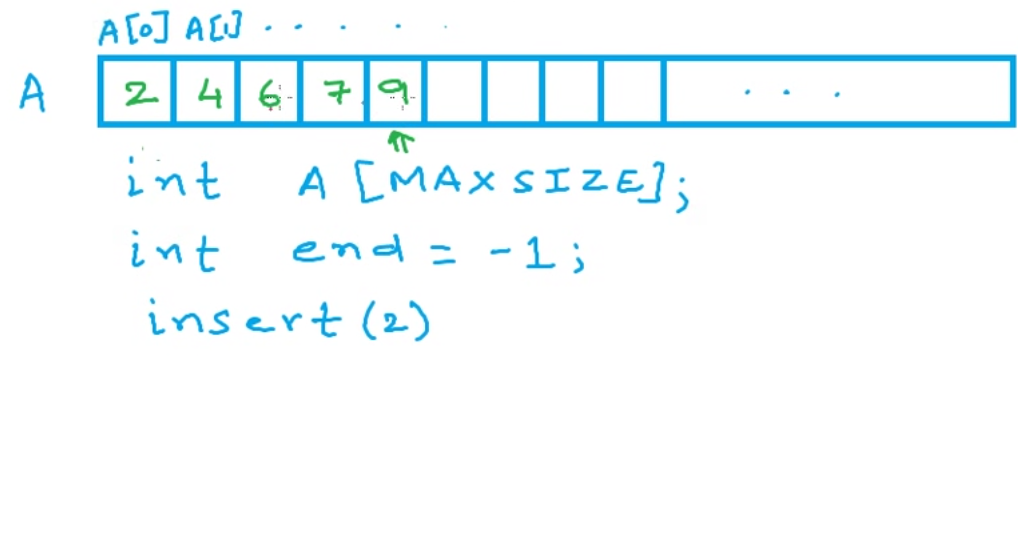 A[0] A[1] . . . . .
A 2 4 6 7 9 . . .
int A[MAXSIZE];
int end = -1;
insert(2)